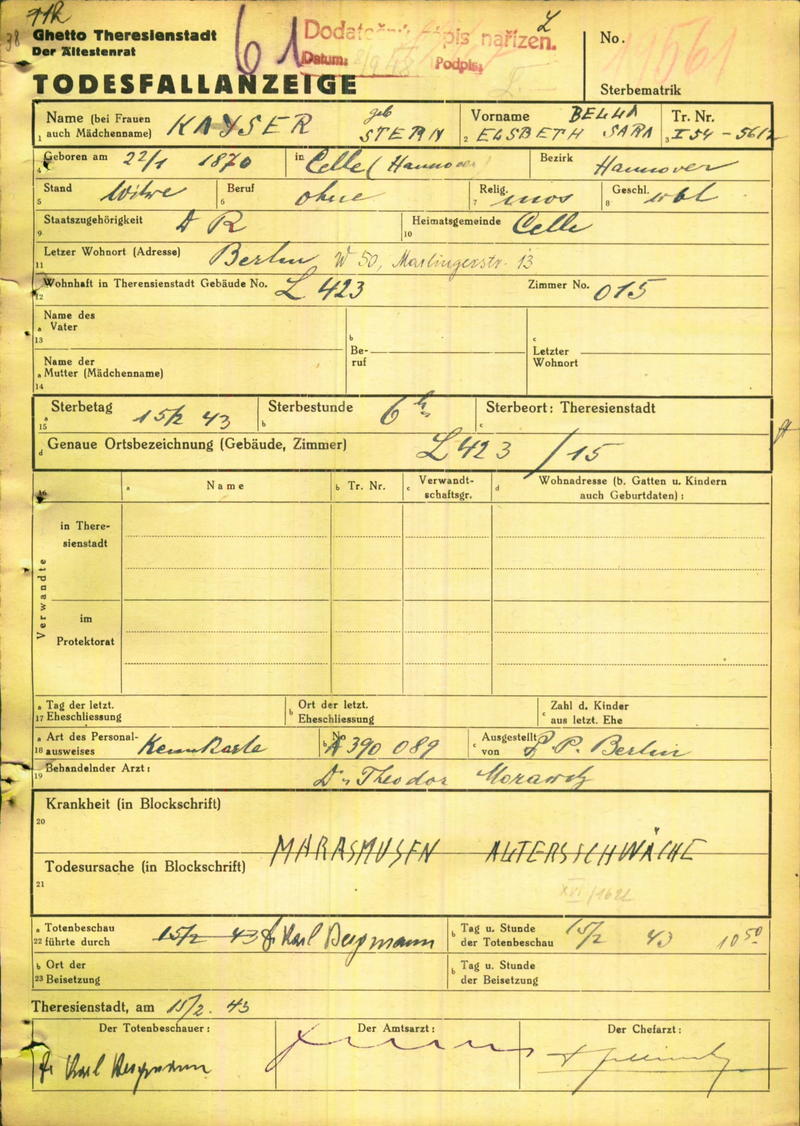 38
Ghetto Theresienstadt
Der Ältestenrat
61
Dodatečný zápis nařízen.
Datum:
Podpis:
TODESFALLANZEIGE
No.
11561
Sterbematrik
Name (bei Frauen auch Mädchenname) KAYSER geb STERN
1
Vorname BELLA ELSBETH SARA
2
Tr. Nr. I 54 - 5612
3
Geboren am 22/1 1870 in Celle (Hannover) Bezirk Hannover
4
Stand Witwe Beruf ohne Relig. mos Geschl. wbl
5 6 7 8
Staatszugehörigkeit D R Heimatsgemeinde Celle
9 10
Letzer Wohnort (Adresse) Berlin W 50, Marlingerstr. 13
11
Wohnhaft in Theresienstadt Gebäude No. L 423 Zimmer No. 015
12
Name des
a Vater
13
b Be-
ruf
c Letzter
Wohnort
Name der
a Mutter (Mädchenname)
14
Sterbetag 15/2 43 Sterbestunde 6 h Sterbeort: Theresienstadt
a 15 b c
d Genaue Ortsbezeichnung (Gebäude, Zimmer) L 423 / 15
16
a Name b Tr. Nr. c Verwandt-
schaftsgr. d Wohnadresse (b. Gatten u. Kindern
auch Geburtdaten) :
Verwandte
in There-
sienstadt
im
Protektorat
a Tag der letzt.
17 Eheschliessung
b Ort der letzt.
Eheschliessung
c Zahl d. Kinder
aus letzt. Ehe
a Art des Personal-
18 ausweises Kennkarte
b No A 390 089
c Ausgestellt
von P. P. Berlin
Behandelnder Arzt : Dr Theodor Morawetz
19
Krankheit (in Blockschrift)
20
MARASMUSEN ALTERSSCHWÄCHE
Todesursache (in Blockschrift)
21
XVI/1621
a Totenbeschau
22 führte durch 15/2 43 Dr Karl Bergmann
b Tag u. Stunde
der Totenbeschau 15/2 43 10 50
b Ort der
23 Beisetzung
b Tag u. Stunde
der Beisetzung
Theresienstadt, am 15/2. 43
Der Totenbeschauer : Der Amtsarzt : Der Chefarzt :
Dr Karl Bergmann